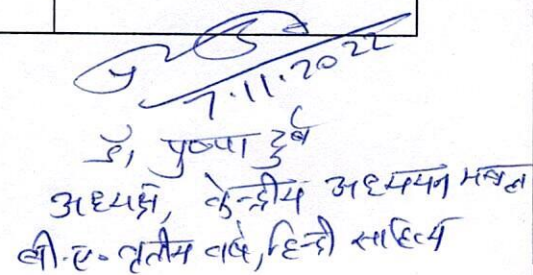 7.11.2022
डॉ, पुष्पा दुबे
अध्यक्ष, केन्द्रीय अध्ययन मण्डल
बी.ए. तृतीय वर्ष, हिन्दी साहित्य